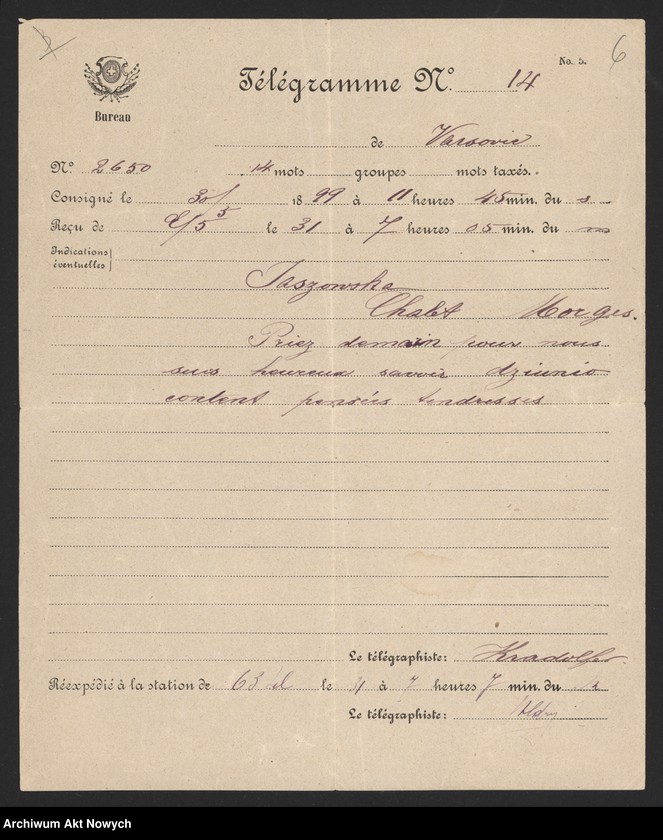 No. 5.
6
Télégramme No. 14
Bureau
de Varsovie
No 2650 14 mots groupes mots taxés.
Consigné le 30/ 1899 à 11 heures 45 min. du s
Reçu de le 31 à 7 heures 05 min. du m
Indications
éventuelles
Jaszowska
Chalet Morges.
Priez demain pour nous
suis heureux savoir dziunio
content pensées tendresses
Le télégraphiste: Kradolfer
Réexpédié à la station de 63 le 31 à 7 heures 7 min. du
Le télégraphiste:
Archiwum Akt Nowych